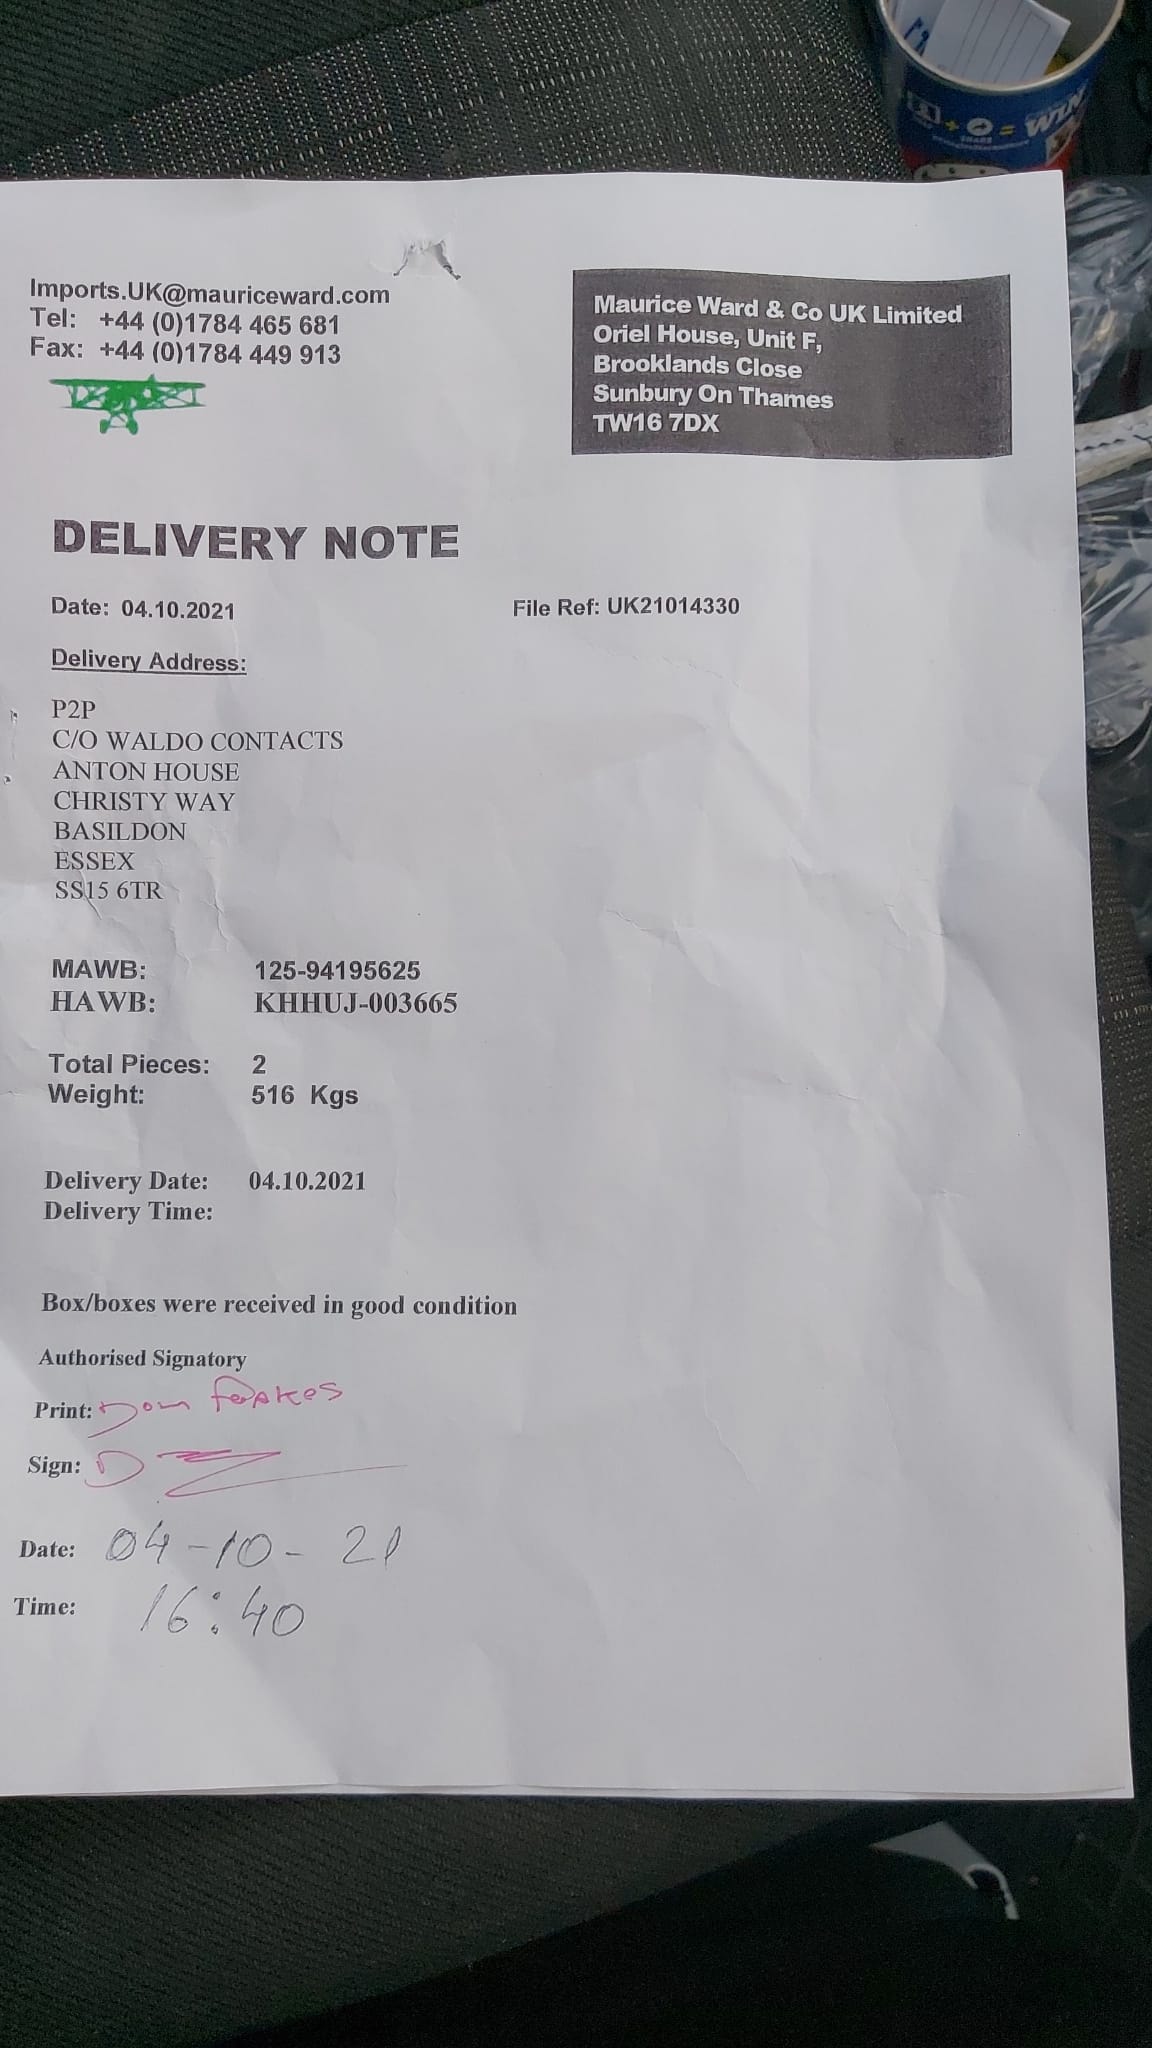 + = WIN
SHARE
Imports.UK@mauriceward.com
Tel: +44 (0)1784 465 681
Fax: +44 (0)1784 449 913
Maurice Ward & Co UK Limited
Oriel House, Unit F,
Brooklands Close
Sunbury On Thames
TW16 7DX
DELIVERY NOTE
Date: 04.10.2021 File Ref: UK21014330
Delivery Address:
P2P
C/O WALDO CONTACTS
ANTON HOUSE
CHRISTY WAY
BASILDON
ESSEX
SS15 6TR
MAWB: 125-94195625
HAWB: KHHUJ-003665
Total Pieces: 2
Weight: 516 Kgs
Delivery Date: 04.10.2021
Delivery Time:
Box/boxes were received in good condition
Authorised Signatory
Print: Dom
Sign:
Date: 04-10-21
Time: 16:40